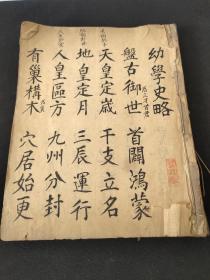 幼學史略
盤古御世 首開鴻蒙
天皇定歳 干支立名
地皇定月 三辰運行
人皇區方 九州分封
有巢構木 穴居始更